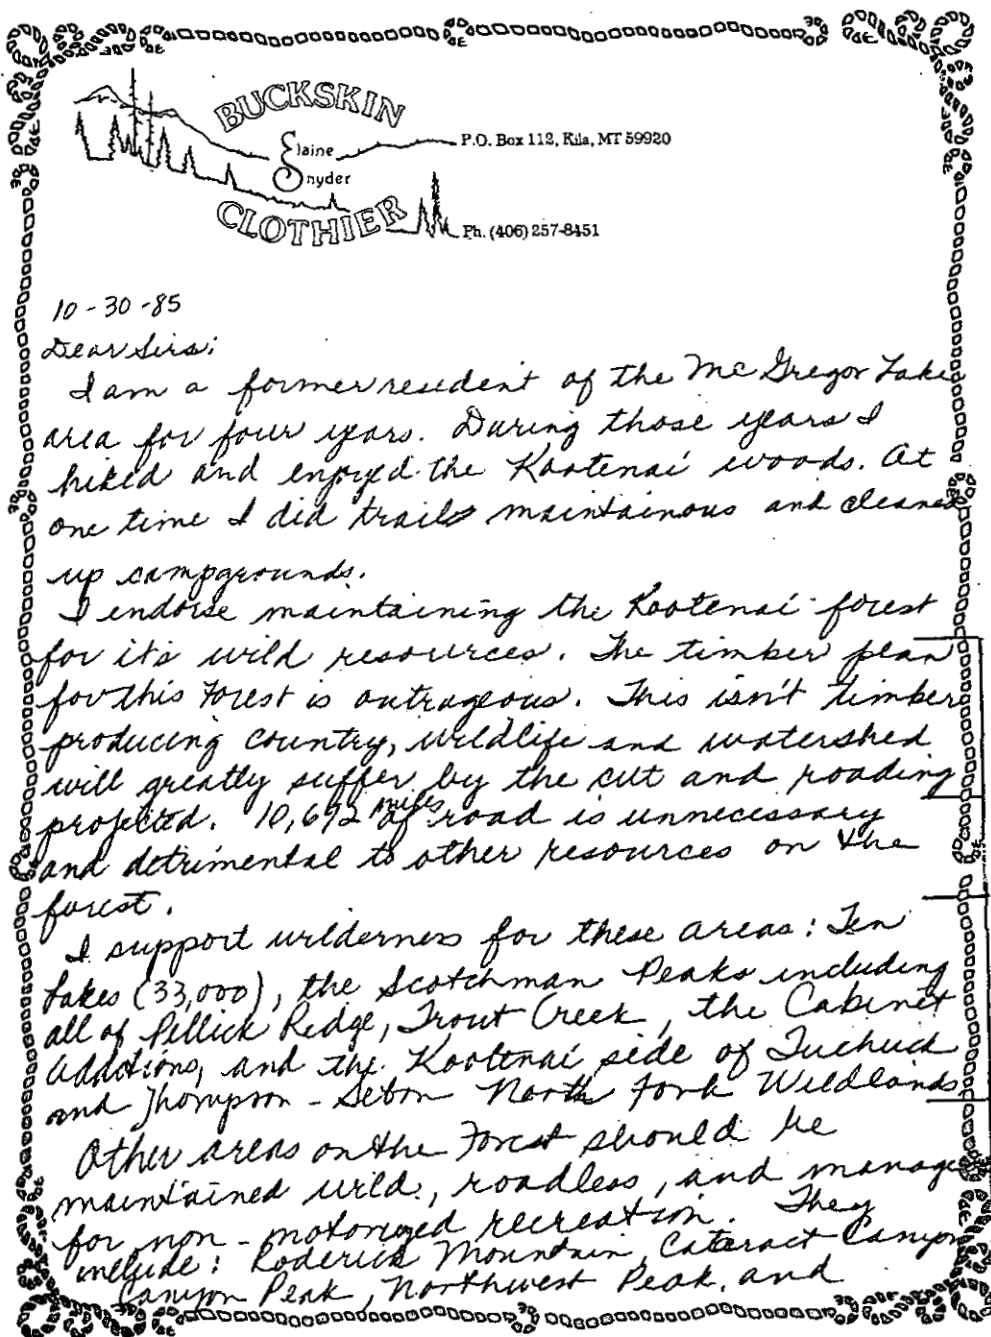 BUCKSKIN
Elaine
Snyder
CLOTHIER
P.O. Box 112, Kila, MT 59920
Ph. (406) 257-8451
10-30-85
Dear Sirs:
I am a former resident of the McGregor Lake
area for four years. During those years I
hiked and enjoyed the Kootenai woods. At
one time I did trails maintainous and cleaned
up campgrounds.
I endorse maintaining the Kootenai forest
for it's wild resources. The timber plan
for this Forest is outrageous. This isn't timber
producing country, wildlife and watershed
will greatly suffer by the cut and roading
projected. 10,692 miles of road is unnecessary
and detrimental to other resources on the
forest.
I support wilderness for these areas: Ten
Lakes (33,000), the Scotchman Peaks including
all of Pellick Ridge, Trout Creek, the Cabinet
additions, and the Kootenai side of Tuchuck
and Thompson - Seton North Fork Wildlands
Other areas on the Forest should be
maintained wild, roadless, and manage
for non-motorized recreation. They
include: Roderick Mountain, Cataract Canyon
Canyon Peak, Northwest Peak, and